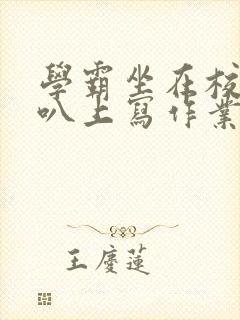 學霸坐在校
叭上寫作業
王慶蓮